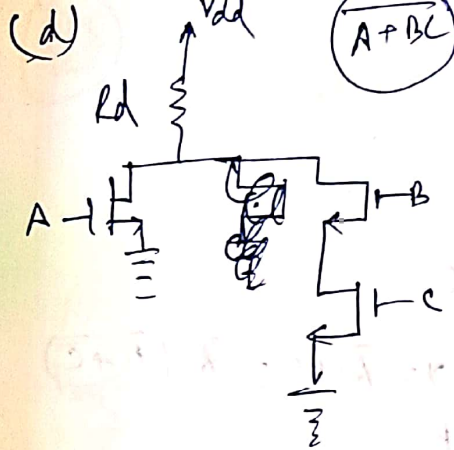 (d)
Vdd
\overline{A+BC}
Rd
A
B
C